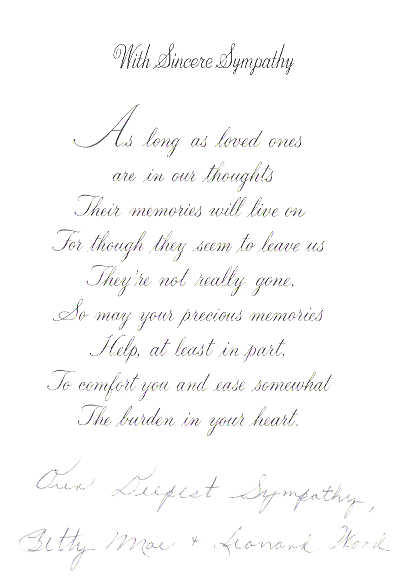 With Sincere Sympathy
As long as loved ones
are in our thoughts
Their memories will live on
For though they seem to leave us
They're not really gone.
So may your precious memories
Help, at least in part,
To comfort you and ease somewhat
The burden in your heart.
Our Deepest Sympathy,
Betty Mae + Leonard Wood